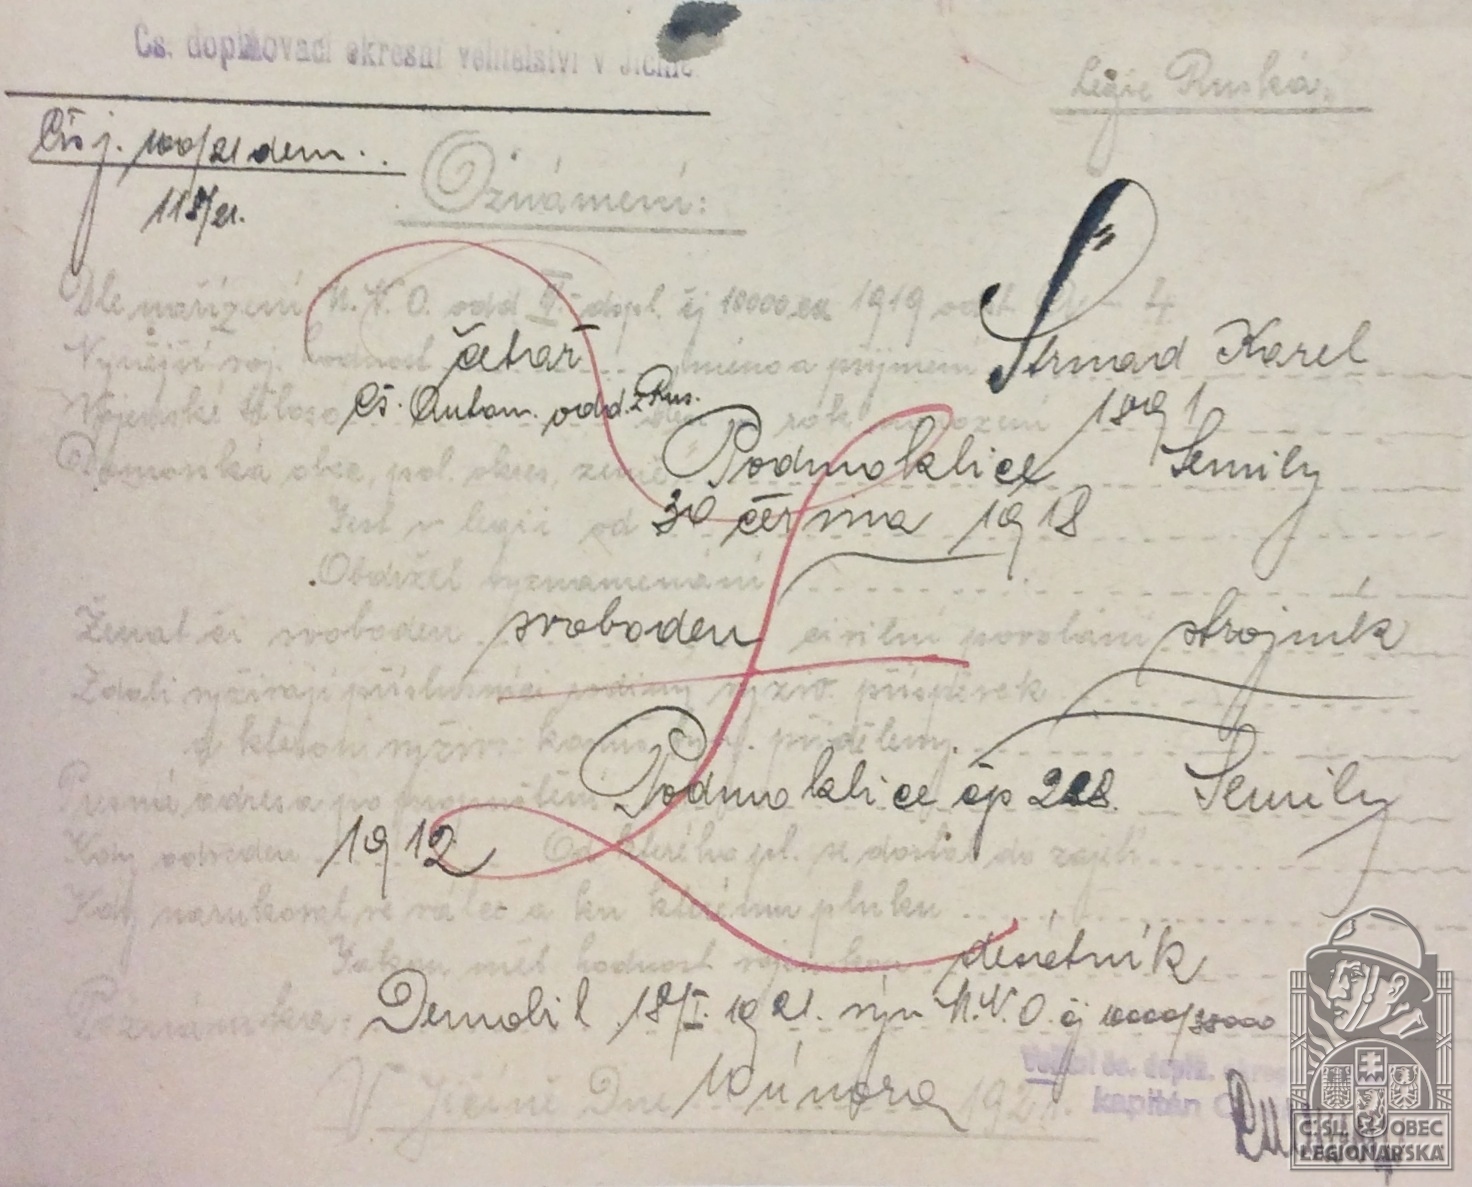 Čs. doplňovací okresní velitelství v Jičíně
Legie Ruská.
Čís j. 100/21 dem.
118/21.
Oznámení:
Dle nařízení M.N.O. odd. dopl. čj 18000 ex 1919 odst. 4
Nynější voj. hodnost četař jméno a příjmení Strnad Karel
Vojenské těleso čs. Autom. odd. z Rus. rok narození 1891
Domovská obec, pol. okres, země Podmoklice Semily
Jest v legii od 30 června 1918
Obdržel vyznamenání
Ženat či svoboden svoboden civilní povolání strojník
Zdali vyživují příslušníci rodiny vyživ. příspěvek
a kterou vyživ. přidělený.
Přesná adresa po propuštění Podmoklice čp 228. Semily
Kdy odveden 1912 Od kterého pl. se dostal do zajetí
Kdy narukoval ve válec a ku kterému pluku
Jakou měl hodnost desátník
Poznámka: Demobil 18/I. 1921. výn M.N.O. čj 10000/38000
V Jičíně Dne 10 února 1921.
Velitel čs. dopl. okres
kapitán
ČSL. OBEC
LEGIONÁŘSKÁ